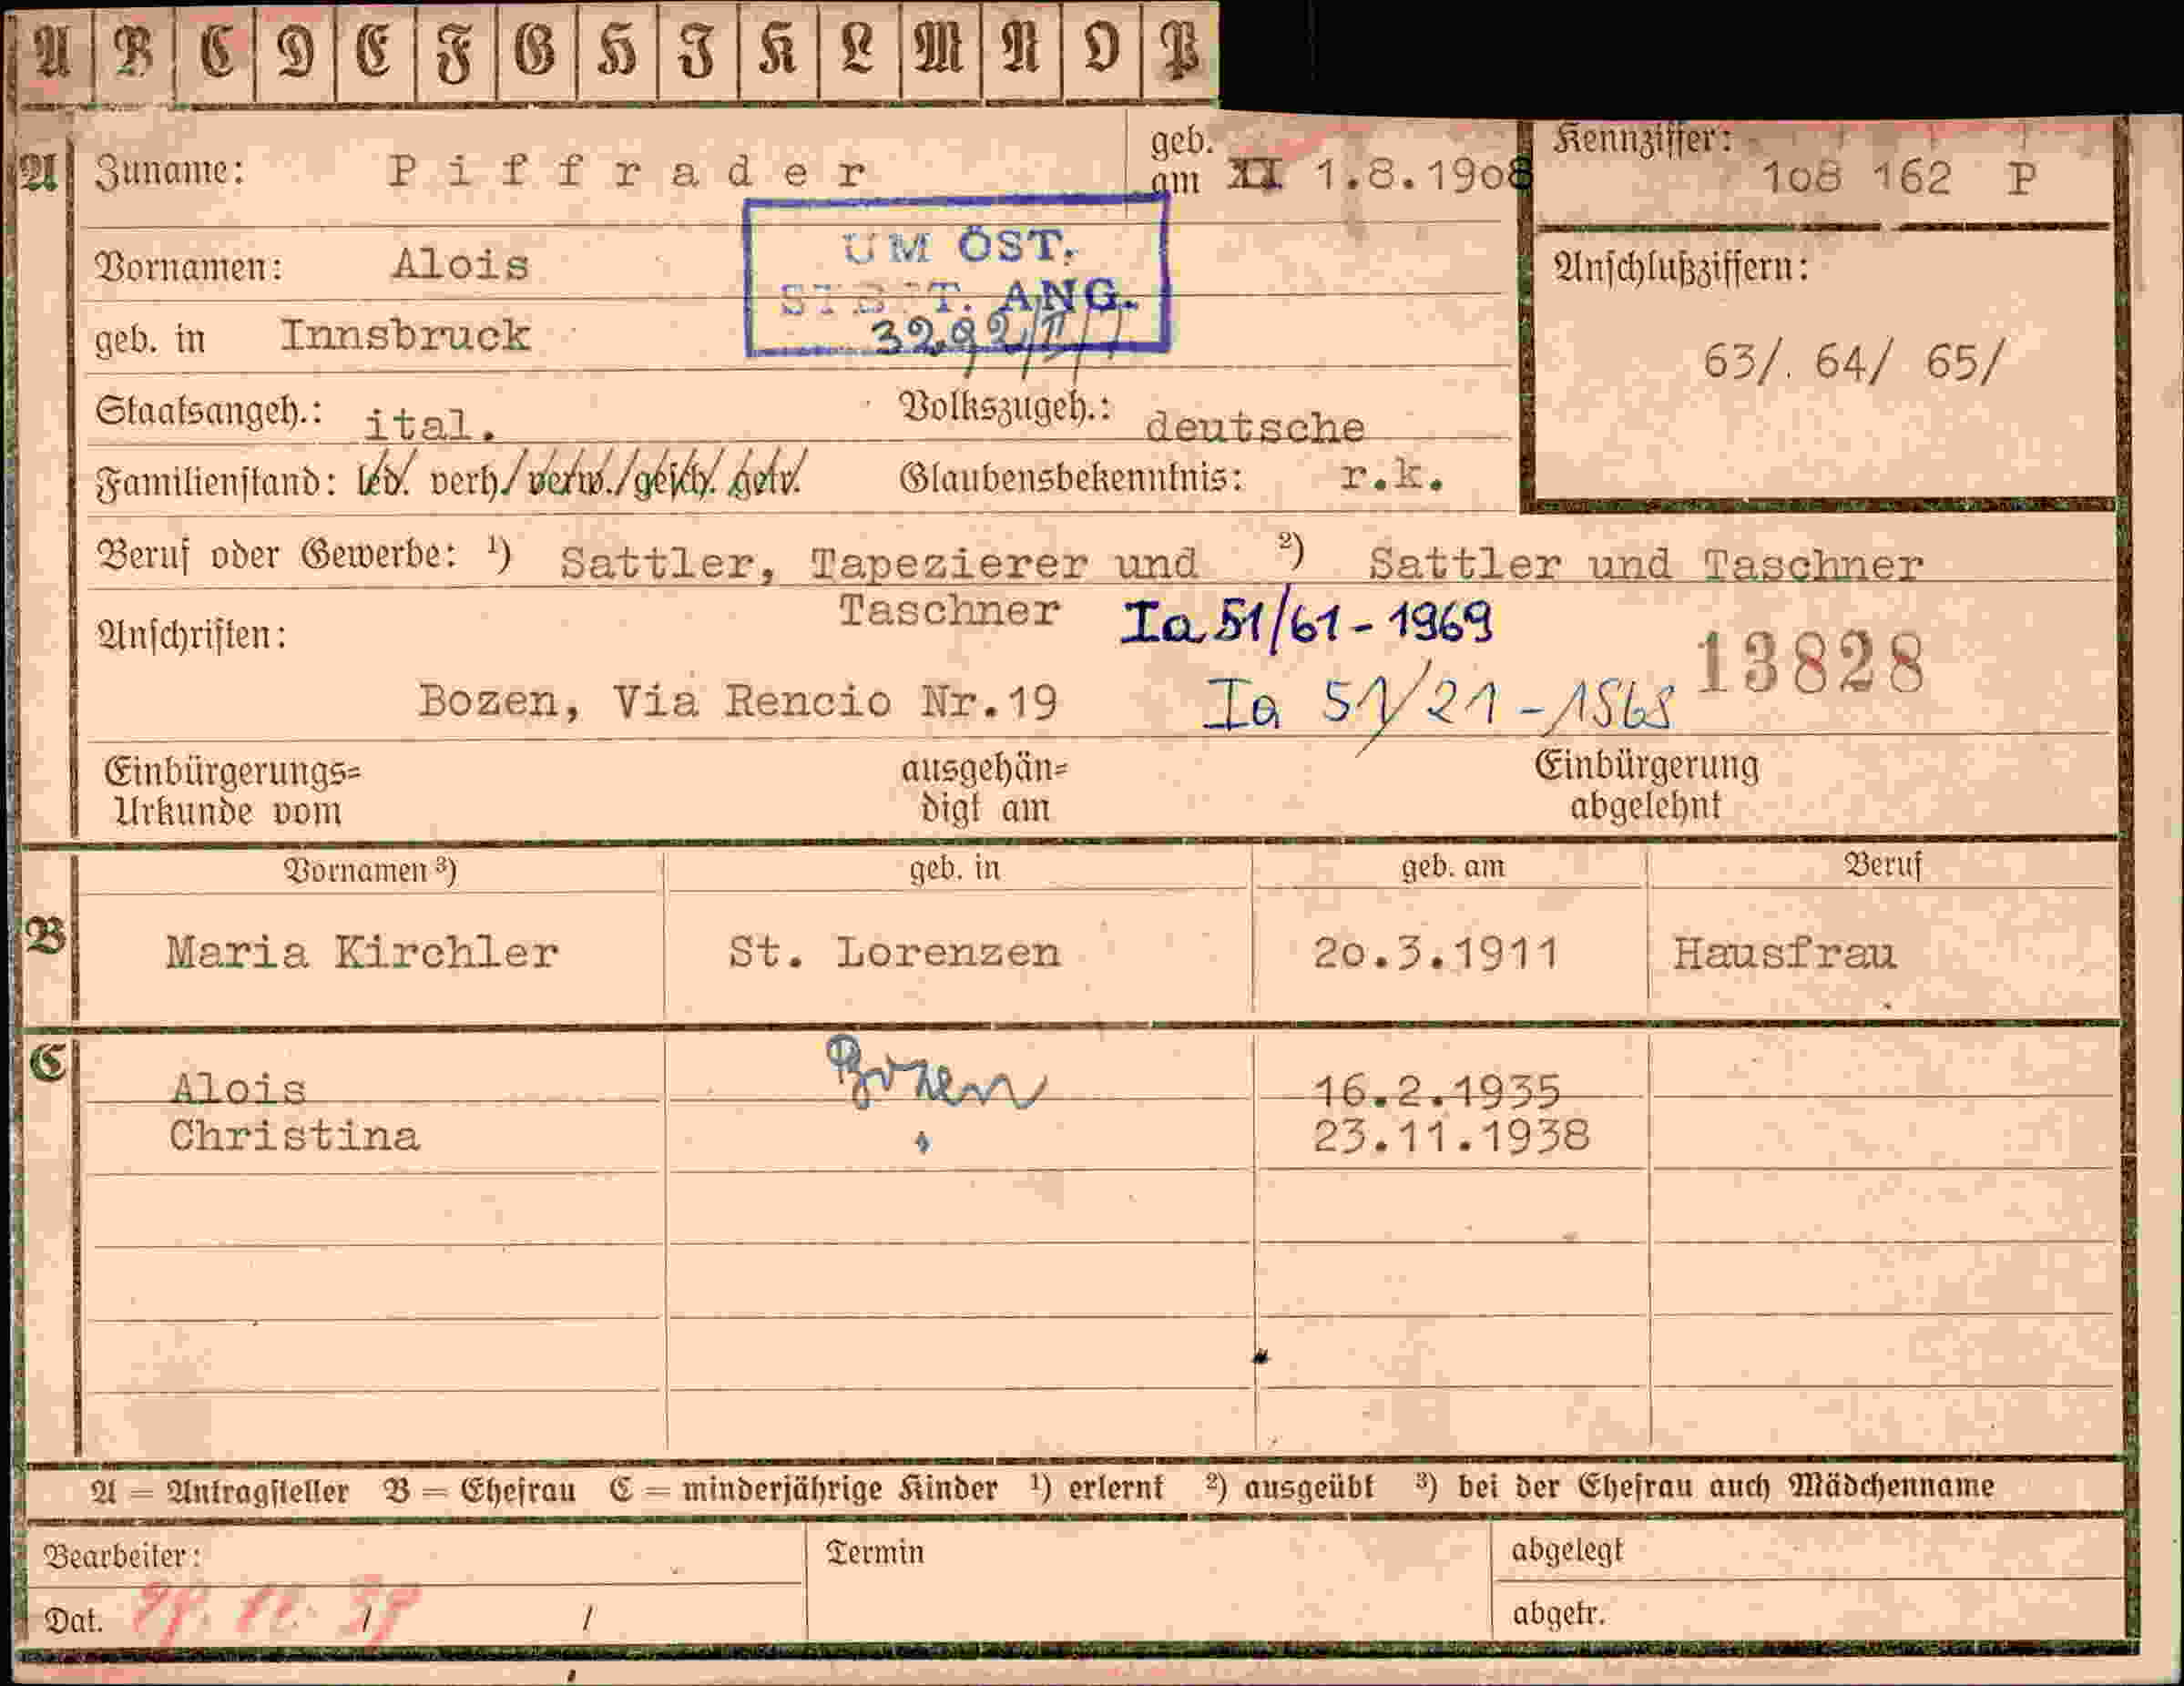 A B C D E F G H J K L M N O P
A Zuname: Piffrader geb. am 1.8.1908 Kennziffer: 108 162 P
Vornamen: Alois
UM ÖST.
ANG.
3292/II/
Anschlußziffern:
63/. 64/ 65/
geb. in Innsbruck
Staatsangeh.: ital. Volkszugeh.: deutsche
Familienstand: led. verh./verw./gesch. getr. Glaubensbekenntnis: r.k.
Beruf oder Gewerbe: ¹) Sattler, Tapezierer und ²) Sattler und Taschner
Taschner Ia 51/61-1969
Anschriften: 13828
Bozen, Via Rencio Nr.19 Ia 51/21-1568
Einbürgerungs= ausgehän= Einbürgerung
Urkunde vom digt am abgelehnt
Vornamen ³) geb. in geb. am Beruf
B Maria Kirchler St. Lorenzen 20.3.1911 Hausfrau
C Alois Bozen 16.2.1935
Christina 23.11.1938
A = Antragsteller B = Ehefrau C = minderjährige Kinder ¹) erlernt ²) ausgeübt ³) bei der Ehefrau auch Mädchenname
Bearbeiter: Termin abgelegt
Dat. / / abgetr.